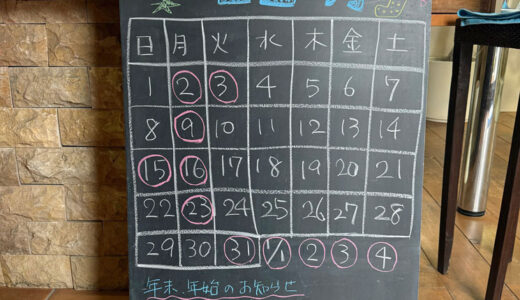 日 月 火 水 木 金 土
1 2 3 4 5 6 7
8 9 10 11 12 13 14
15 16 17 18 19 20 21
22 23 24 25 26 27 28
29 30 31 1/1 2 3 4
年末年始のお知らせ